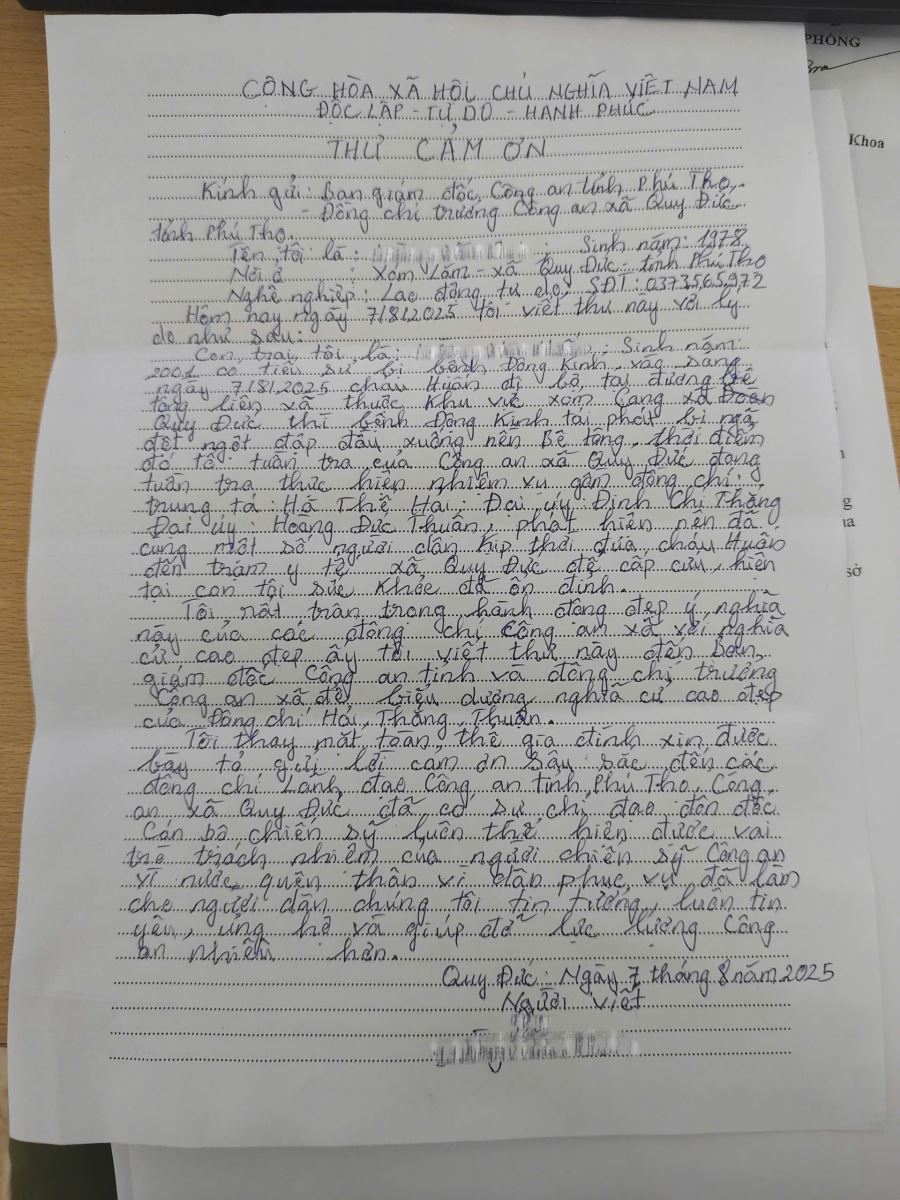 PHÒNG
Khoa
sở
CỘNG HÒA XÃ HỘI CHỦ NGHĨA VIỆT NAM
ĐỘC LẬP - TỰ DO - HẠNH PHÚC
THƯ CẢM ƠN
Kính gửi: Ban giám đốc, Công an tỉnh Phú Thọ,
- Đồng chí trưởng Công an xã Quy Đức
tỉnh Phú Thọ.
Tên tôi là : Sinh năm: 1978
Nơi ở : Xóm Lầm - xã Quy Đức - tỉnh Phú Thọ
Nghề nghiệp: Lao động tự do, SĐT: 0373565972
Hôm nay ngày 7/8/2025 tôi viết thư này với lý
do như sau:
Con trai tôi là: ; Sinh năm:
2001 có tiền sử bị bệnh Động Kinh, vào sáng
ngày 7/8/2025 cháu Huấn đi bộ, tại đường bê
tông liên xã thuộc khu vực xóm Cang xã Đoàn
Quy Đức thì bệnh Động Kinh tái phát bị ngã
đột ngột đập đầu xuống nền Bê tông, thời điểm
đó tổ tuần tra của Công an xã Quy Đức đang
tuần tra thực hiện nhiệm vụ gồm đồng chí:
trung tá: Hà Thế Hải; Đại úy Đinh Chí Thắng
Đại úy: Hoàng Đức Thuận, phát hiện nên đã
cùng một số người dân kịp thời đưa cháu Huấn
đến trạm y tế xã Quy Đức để cấp cứu, hiện
tại con tôi sức khỏe đã ổn định.
Tôi rất trân trọng hành động đẹp ý nghĩa
này của các đồng chí Công an xã với nghĩa
cử cao đẹp ấy tôi viết thư này đến Ban
giám đốc Công an tỉnh và đồng chí trưởng
Công an xã để biểu dương nghĩa cử cao đẹp
của Đồng chí Hải, Thắng, Thuận.
Tôi thay mặt toàn thể gia đình xin được
bày tỏ gửi lời cảm ơn sâu sắc đến các
đồng chí Lãnh đạo Công an tỉnh Phú Thọ, Công
an xã Quy Đức đã có sự chỉ đạo đôn đốc
Cán bộ chiến sỹ luôn thể hiện được vai
trò trách nhiệm của người chiến sỹ Công an
vì nước quên thân vì dân phục vụ đã làm
cho người dân chúng tôi tin tưởng, luôn tin
yêu, ủng hộ và giúp đỡ lực lượng Công
an nhiều hơn.
Quy Đức: Ngày 7 tháng 8 năm 2025
Người viết